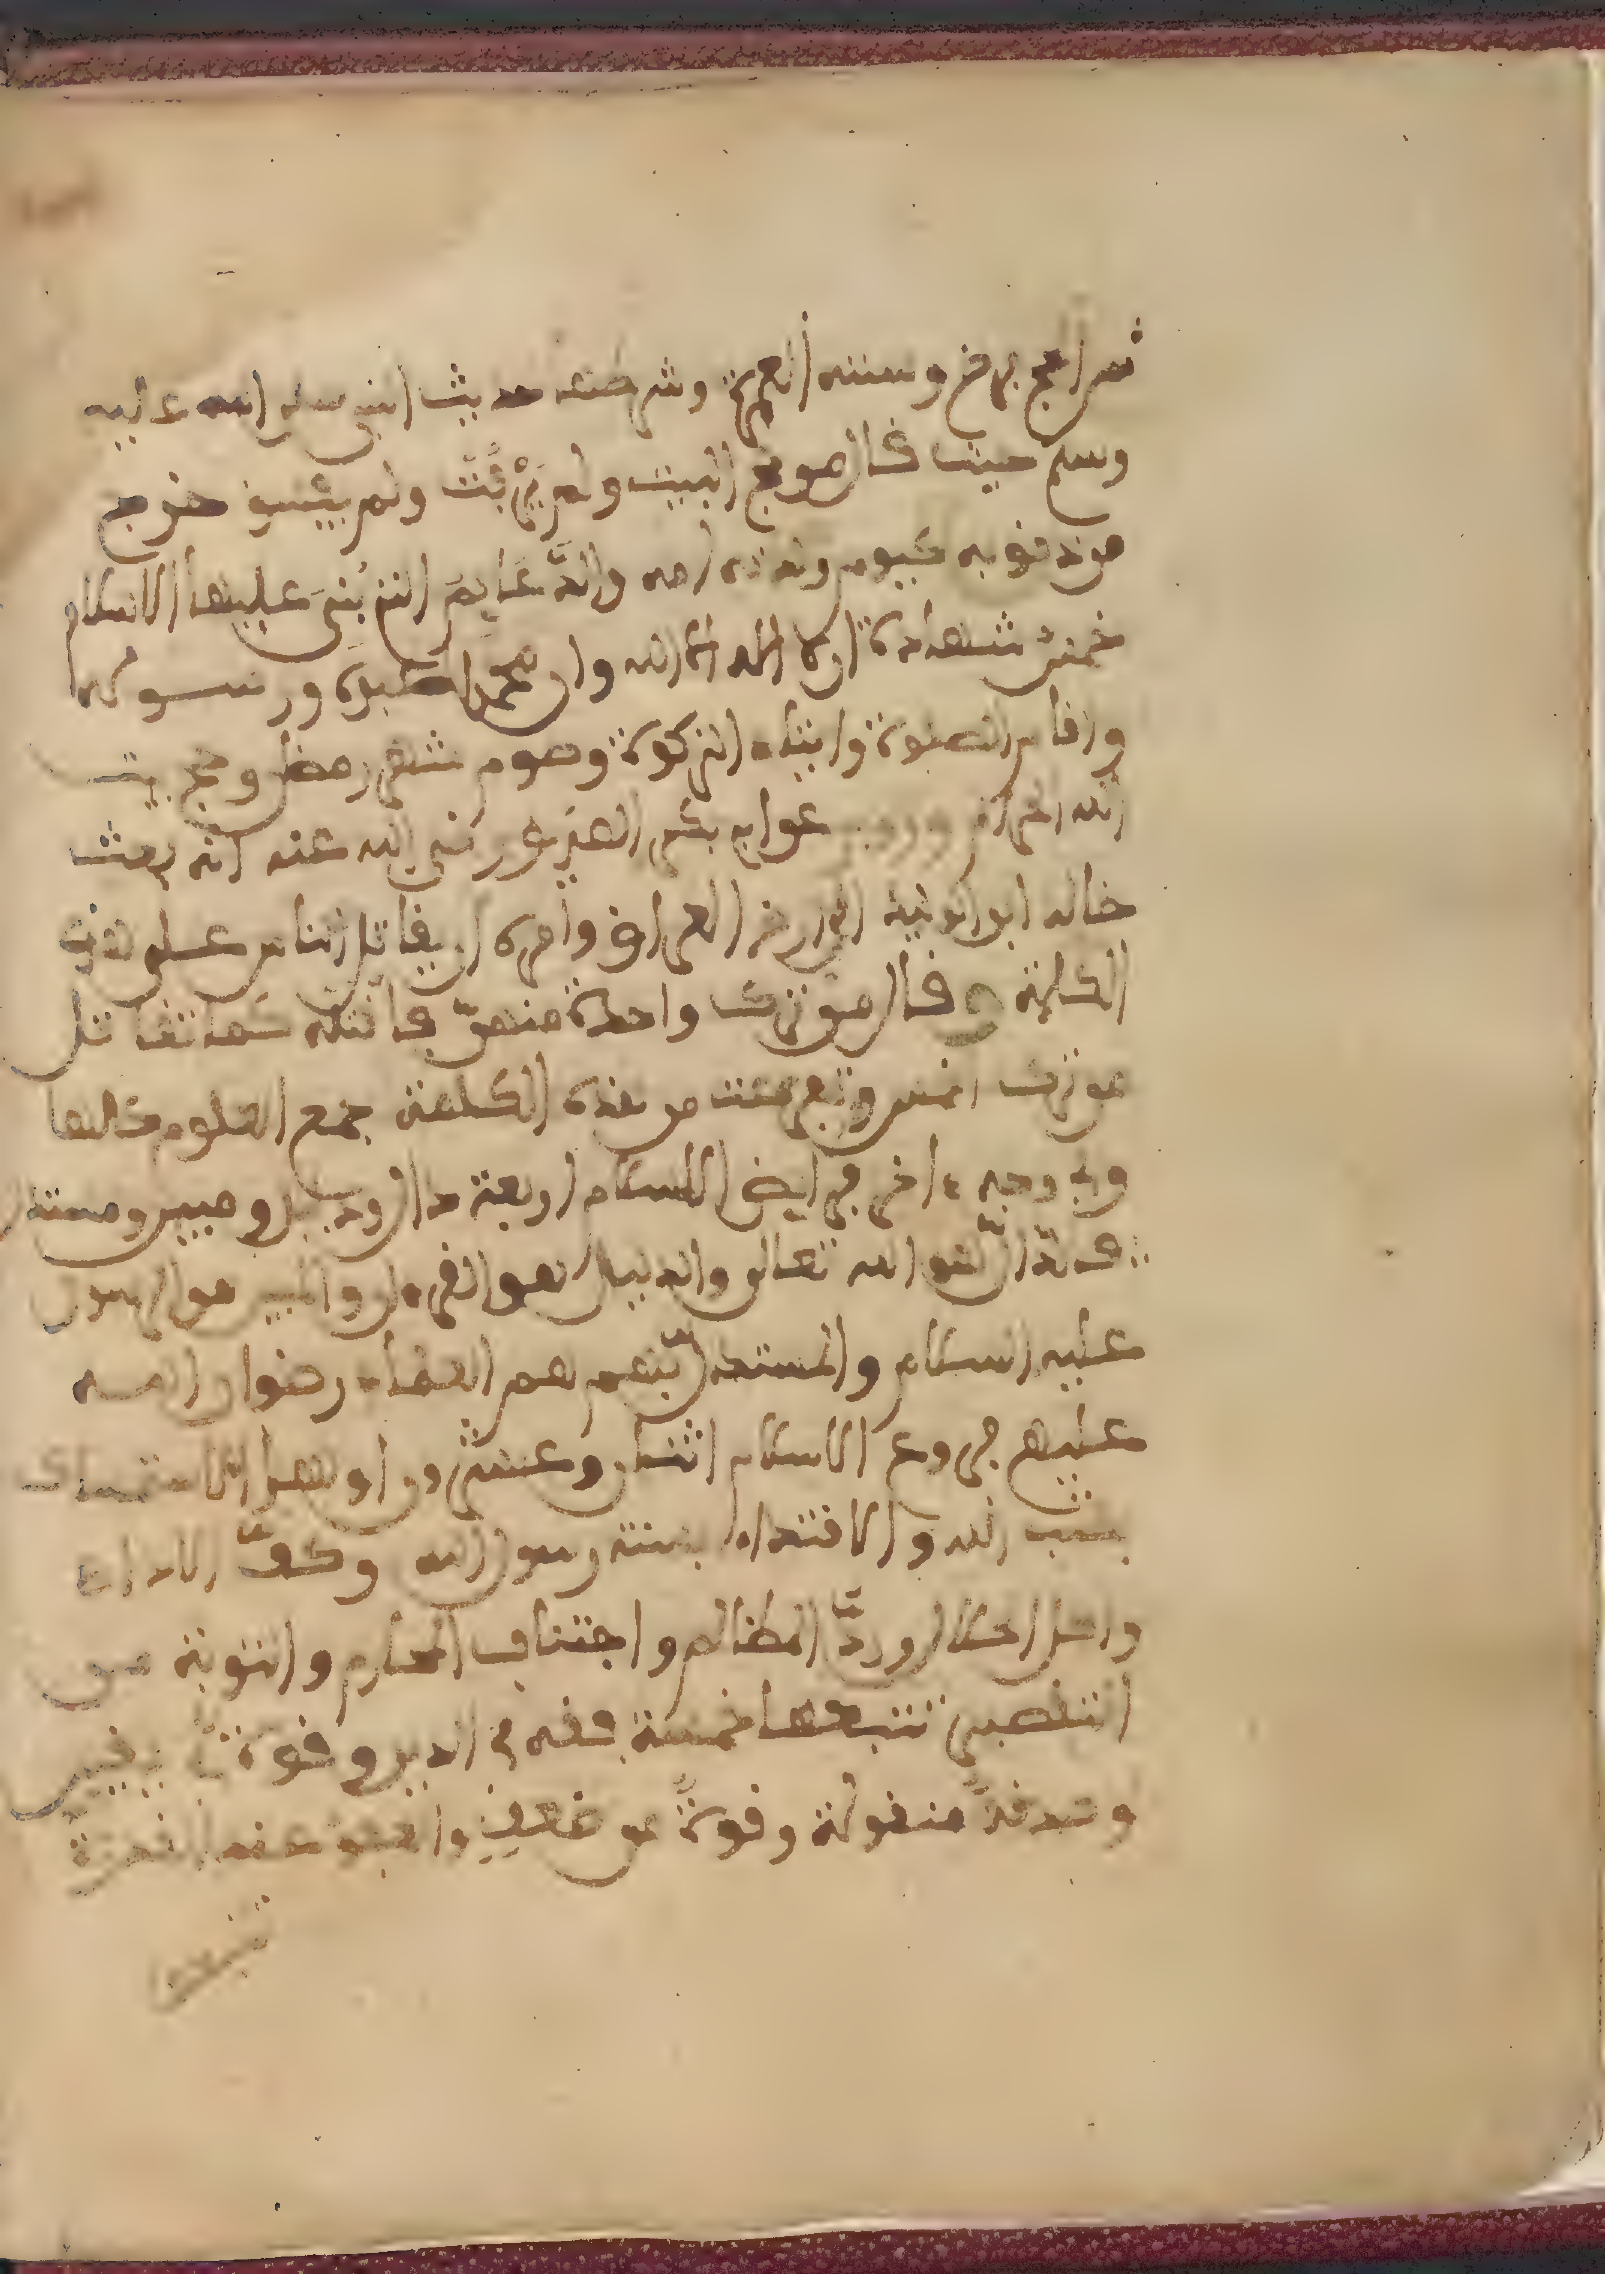 ثم الحج فرض وسنته العمرة وشرطه حديث النبي صلى الله عليه
وسلم حيث قال من حج البيت ولم يرفث ولم يفسق خرج
من ذنوبه كيوم ولدته امه والدعايم التي بني عليها الاسلام
خمس شهادة ان لا اله الا الله وان محمدا عبده ورسوله
واقام الصلوة وايتاء الزكوة وصوم شهر رمضان وحج بيت
الله الحرام عن ابي بكر الصديق رضي الله عنه انه بعث
خالد ابن الوليد الى ارض العراق وامره ان يقاتل الناس على هذه
الكلمة وقال من ترك واحدة منهن فاقتله كما تقاتل
من ترك الخمس وتفرعت من هذه الكلمة جمع العلوم كالها
وفي وجه اخر فرايض الاسلام اربعة دال ودليل ومبين ومستدل
فالدال هو الله تعالى والدليل هو القرءان والمبين هو الرسول
عليه السلام والمستدل بهم هم العلماء رضوان الله
عليهم فروع الاسلام اثنان وعشرون اولها الاستمساك
بكتب الله والاقتداء بسنة رسول الله وكف الاذاء
واكل الحلال ورد المظالم واجتناب المحارم والتوبة من
التقصير تتبعها خمسة فقه في الدين وقوة في يقين
وصدقة منقولة وقوة من ضعف والعفو عند القدرة